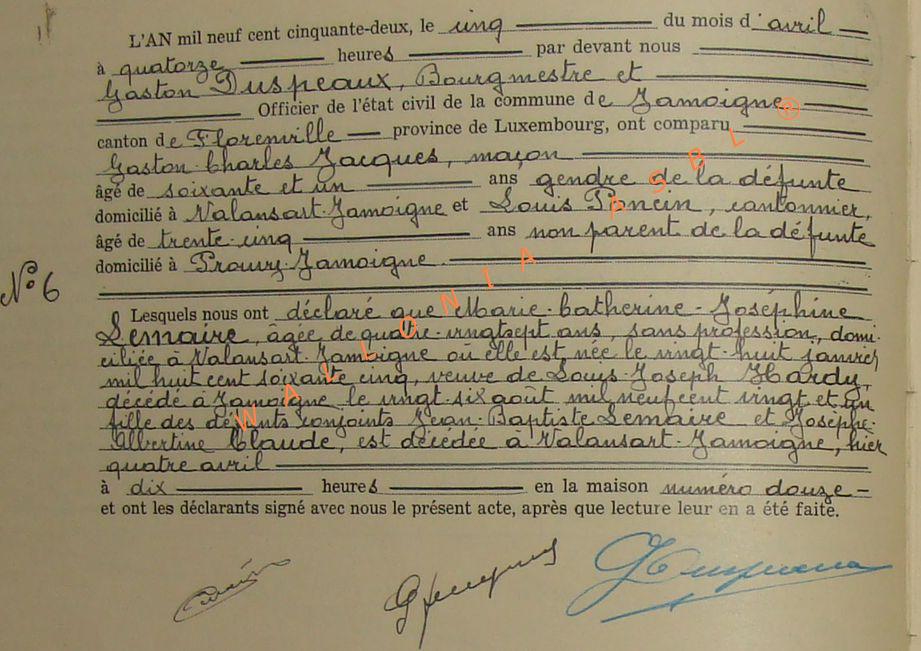 L'AN mil neuf cent cinquante-deux, le cinq du mois d'avril
à quatorze heures par devant nous
Gaston Duspeaux, Bourgmestre et
Officier de l'état civil de la commune de Jamoigne
canton de Florenville province de Luxembourg, ont comparu
Gaston-Charles Jacques, maçon
âgé de soixante et un ans gendre de la défunte
domicilié à Valansart-Jamoigne et Louis Poncin, cantonnier,
âgé de trente-cinq ans non parent de la défunte
domicilié à Prouvy-Jamoigne
N° 6
Lesquels nous ont déclaré que Marie-Catherine-Joséphine
Lemaire, âgée de quatre-vingt sept ans, sans profession, domi-
ciliée à Valansart-Jamoigne où elle est née le vingt-huit janvier
mil huit cent soixante cinq, veuve de Louis-Joseph Hardy,
décédé à Jamoigne le vingt-six août mil neuf cent vingt et un
fille des défunts conjoints Jean-Baptiste Lemaire et Josèphe-
Albertine Claude, est décédée à Valansart-Jamoigne, hier
quatre avril
à dix heures en la maison numéro douze-
et ont les déclarants signé avec nous le présent acte, après que lecture leur en a été faite.
GJacques
WALLONIA ASBL ®